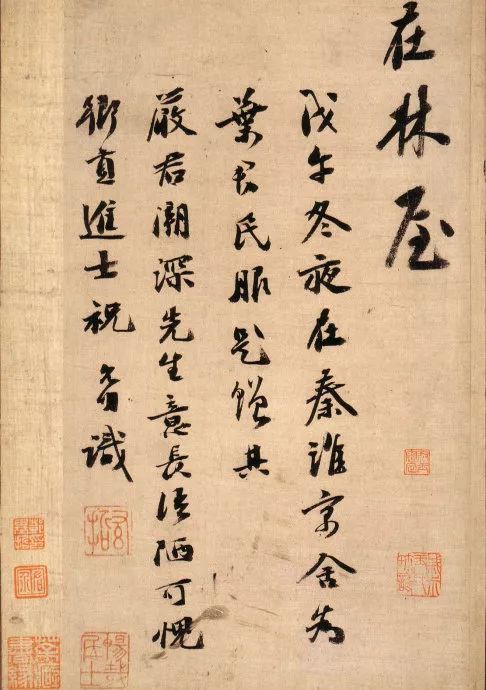 在林屋
戊午冬夜在秦淮寓舍為
葉君民服題贈其
嚴君潮深先生意長語陋可愧
鄉貢進士祝允明識